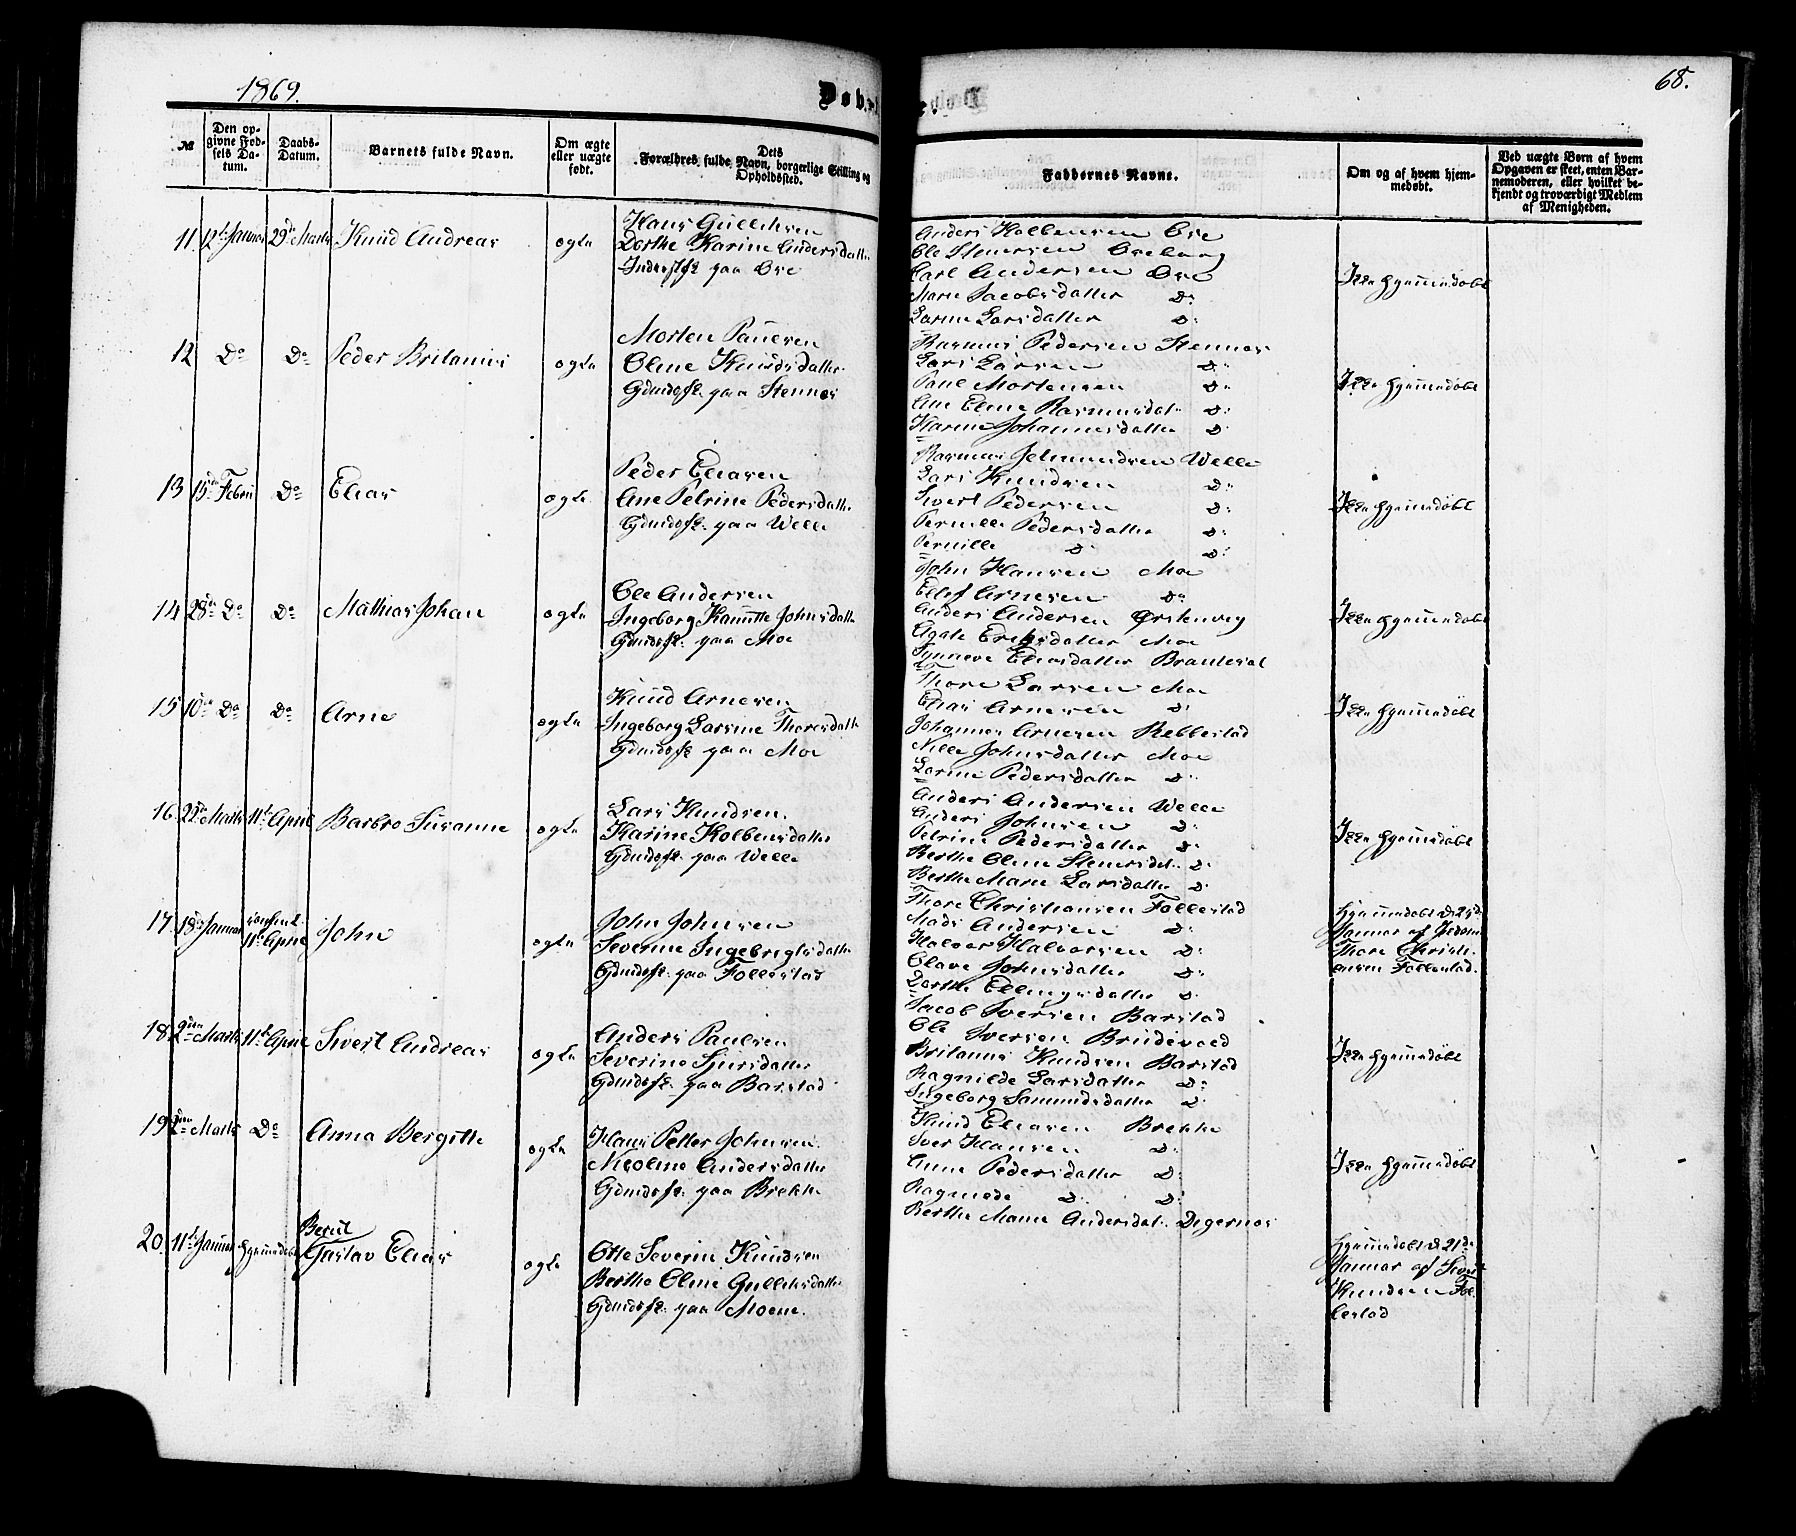 1869.
Døb
68.
№
Den opgivne Fødsels Datum.
Daabs-Datum.
Barnets fulde Navn.
Om ægte eller uægte født.
Dets Forældres fulde Navn, borgerlige Stilling og Opholdssted.
Faddernes Navne.
Om og af hvem hjemmedøbt.
Ved uægte Børn af hvem Opgaven er skeet, enten Barnemoderen, eller hvilket bekjendt og troværdigt Medlem af Menigheden.
11. 12te Januar 29de Marts Knud Andreas ægte
Hans Gulliksen
Dorthe Karine Andersdatter
Inderstf. paa Øre
Anders Kolbensen Øre
Ole Stenersen Øreborg
Carl Andersen Øre
Marie Jacobsdatter Do
Larine Larsdatter Do
Ikke hjemmedøbt
12 Do Do Peder Britanius ægte
Morten Paulsen
Oline Knudsdatter
Gdmdsf. paa Stennes
Rasmus Pedersen Stennes
Lars Larsen Do
Paul Mortensen Do
Ane Eline Rasmusdat. Do
Karine Johannesdatter Do
Ikke hjemmedøbt
13 15de Febru Do Elias ægte
Peder Eliasen
Ane Petrine Pedersdatter
Gdmdsf. paa Welle
Rasmus Jetmundsen Welle
Lars Knudsen Do
Sivert Pedersen Do
Pernille Pedersdatter Do
Pernille Do Do
Ikke hjemmedøbt
14 28de Do Do Mathias Johan ægte
Ole Andersen
Ingeborg Kanutte Johnsdatter
Gdmdsf. paa Moe
John Hansen Moe
Ellef Arnesen Do
Anders Andersen Ørstenvig
Agate Eriksdatter Moe
Synneve Eliasdatter Brautesæt
Ikke hjemmedøbt
15 10de Do Do Arne ægte
Knud Arnesen
Ingeborg Larsine Thoresdatter
Gdmdsf. paa Moe
Thore Larsen Moe
Elias Arnesen Do
Johannes Arnesen Rebbestad
Nille Johnsdatter Moe
Larine Pedersdatter Do
Ikke hjemmedøbt
16. 22de Marts 11te April Barbro Susanne ægte
Lars Knudsen
Karine Kolbensdatter
Gdmdsf. paa Welle
Anders Andersen Welle
Anders Johnsen Do
Petrine Pedersdatter Do
Berthe Oline Stenersdat. Do
Berthe Marie Larsdatter Do
Ikke hjemmedøbt
17. 18de Januar 11te April John ægte
John Johnsen
Severine Ingebrigtsdatter
Gdmdsf. paa Follestad
Thore Christiansen Follestad
Mads Andersen Do
Halvor Halvorsen Do
Olave Johnsdatter Do
Dorthe Ellingsdatter Do
Hjemmedøbt d. 25de
Januar af
Thore Christi-
ansen Follestad.
18. 2den Marts 11te April Sivert Andreas ægte
Anders Paulsen
Severine Sjursdatter
Gdmdsf. paa Barstad
Jacob Iversen Barstad
Ole Iversen Brudevold
Britanus Knudsen Barstad
Ragnilde Larsdatter Do
Ingeborg Samundsdatter Do
Ikke hjemmedøbt
19 2den Marts Do Anna Bergitte ægte
Hans Petter Johnsen
Nicoline Andersdatter
Gdmdsf. paa Brekke
Knud Eliasen Brekke
Iver Hansen Do
Anne Pedersdatter Do
Ragnilde Do Do
Berthe Marie Andersdat. Digernes
Ikke hjemmedøbt
20. 11te Januar hjemmedøbt
Berut
Gustav Elias ægte
Otte Severin Knudsen
Berthe Oline Gulliksdatter
Gdmdsf. paa Moene.
Hjemmedøbt d. 21de
Januar af Sivert
Knudsen Fol-
lestad